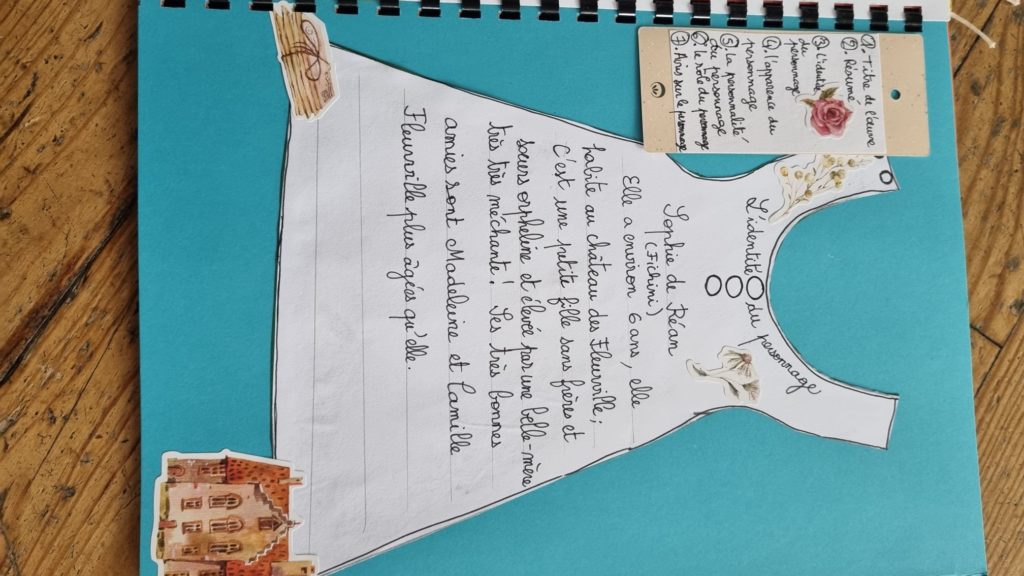 ① Titre de l'œuvre
② Résumé
③ L'identité
du personnage
④ L'apparence du
personnage
⑤ La personnalité
du personnage
⑥ Le rôle du personnage
⑦ Avis sur le personnage
L'identité du personnage
Sophie de Réan
(Fichini)
Elle a environ 6 ans, elle
habite au château des Fleurville ;
C'est une petite fille sans frères et
sœurs orpheline et élevé par une belle-mère
très très méchante ! Ses très bonnes
amies sont Madeleine et Camille
Fleurville plus âgés qu'elle.